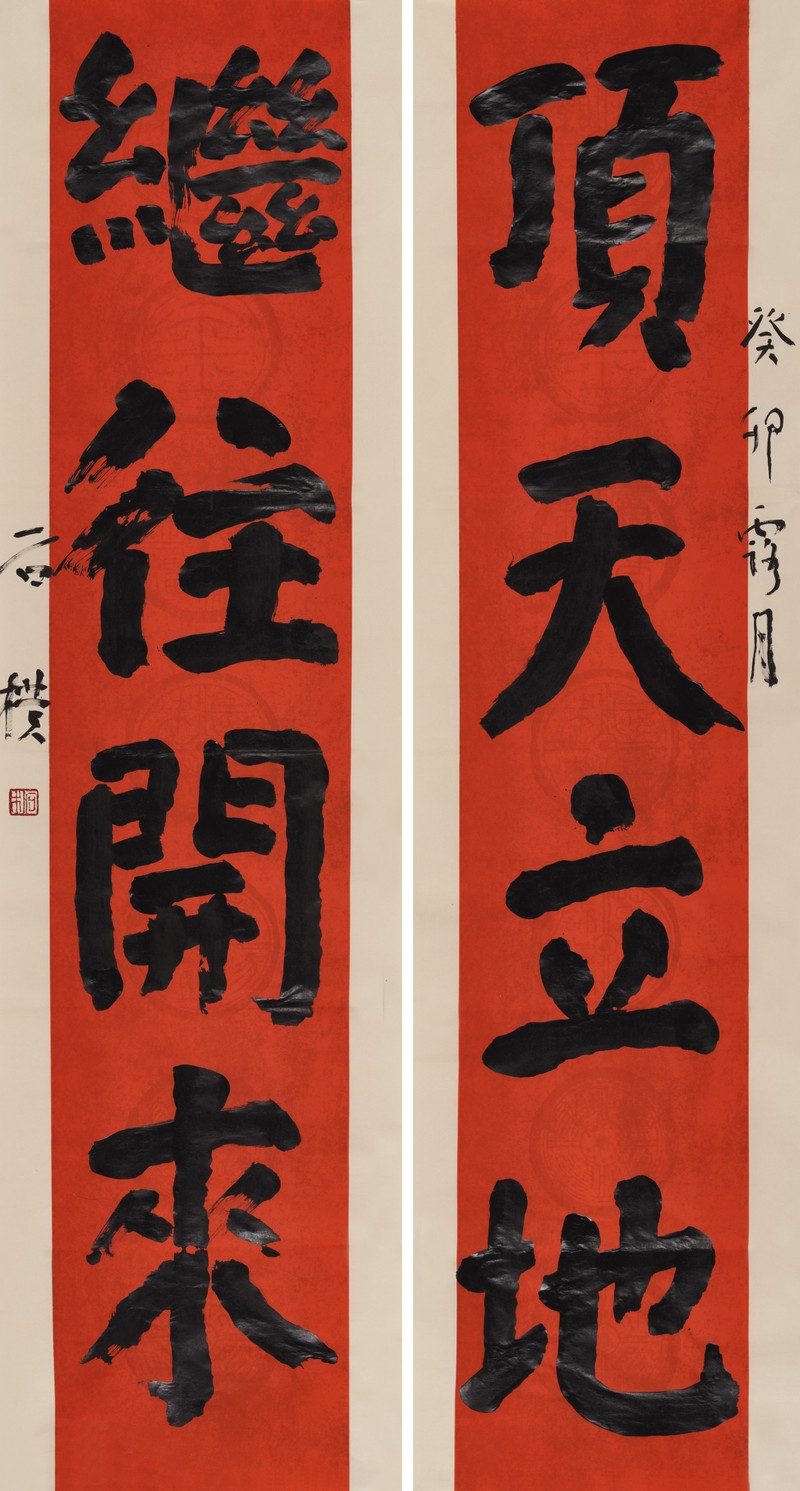 頂天立地
繼往開來
癸卯露月
石樸